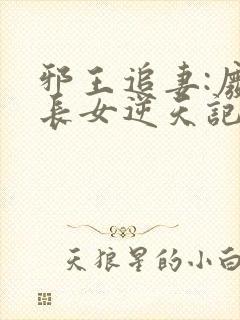 邪王追妻:
長女逆天記
天狼星的小白